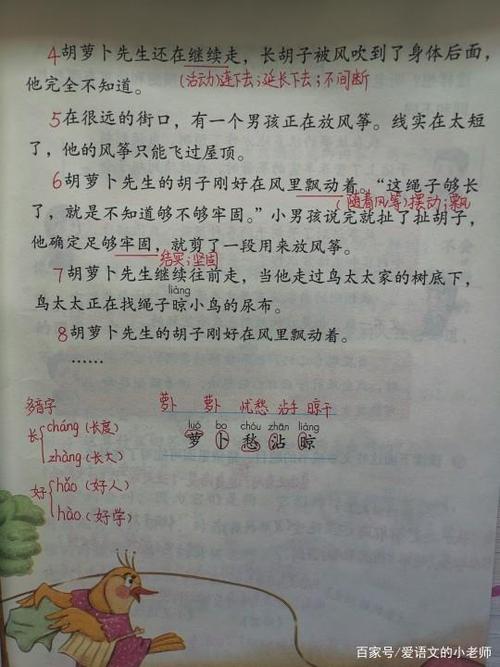 4胡萝卜先生还在继续走，长胡子被风吹到了身体后面，
他完全不知道。(活动)连下去；延长下去；不间断
5在很远的街口，有一个男孩正在放风筝。线实在太短
了，他的风筝只能飞过屋顶。
6胡萝卜先生的胡子刚好在风里飘动着。“这绳子够长
(随着风等)摆动；飘
了，就是不知道够不够牢固。”小男孩说完就扯了扯胡子，
他确定足够牢固，就剪了一段用来放风筝。
结实；坚固
7胡萝卜先生继续往前走，当他走过鸟太太家的树底下，
liàng
鸟太太正在找绳子晾小鸟的尿布。
8胡萝卜先生的胡子刚好在风里飘动着。
……
多音字
长 cháng (长度)
zhǎng (长大)
好 hǎo (好人)
hào (好学)
萝卜 萝卜 忧愁 沾手 晾干
luó bo chóu zhān liàng
萝 卜 愁 沾 晾
百家号/爱语文的小老师